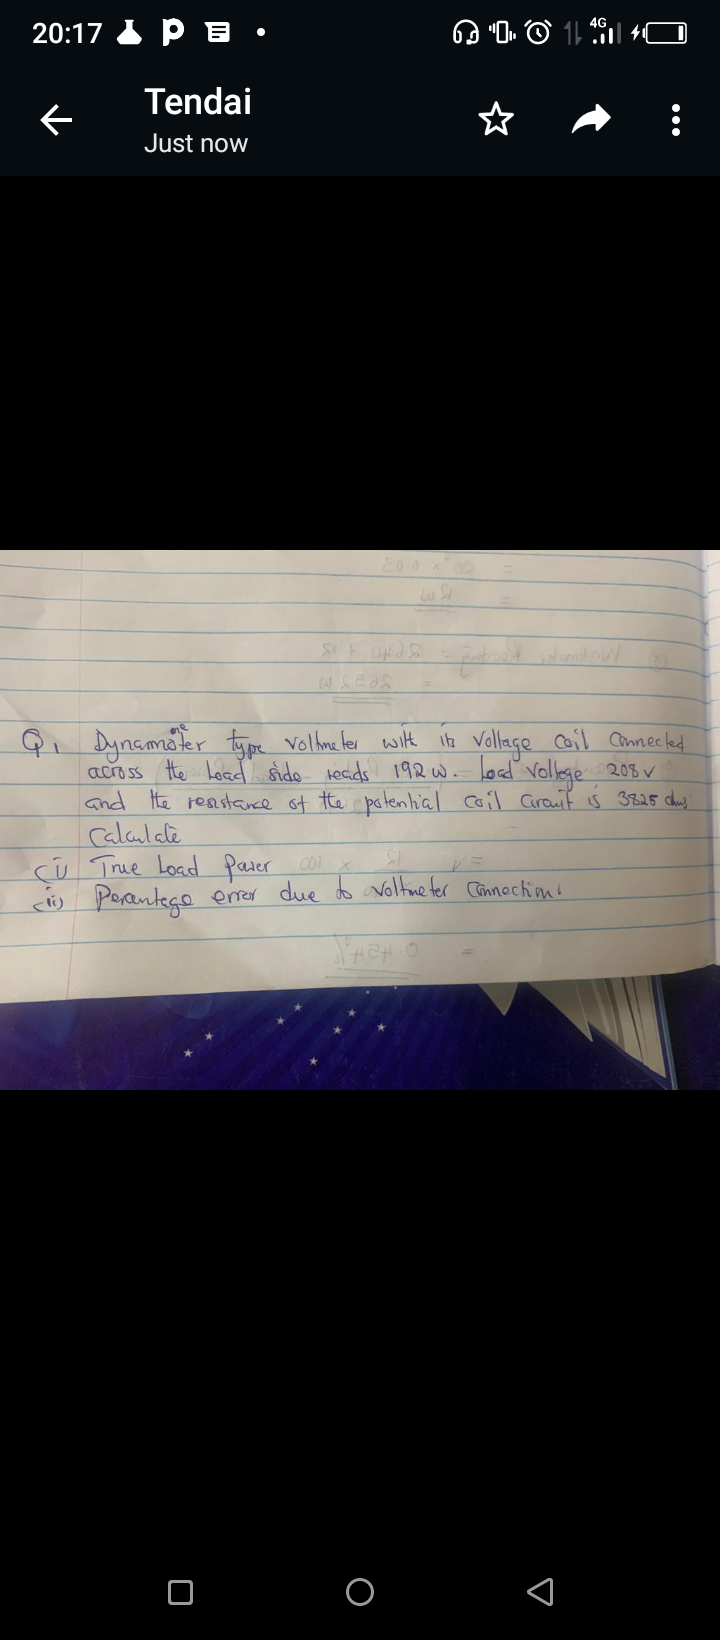 20:17
4G
Tendai
Just now
Q1 Dynammoter type voltmeter with its voltage coil connected
me
across the load side reads 192 w. Load voltage 208 v
and the resistance of the potential coil circuit is 3825 ohms
Calculate
(i) True Load Power
(ii) Percentage error due to voltmeter connection.